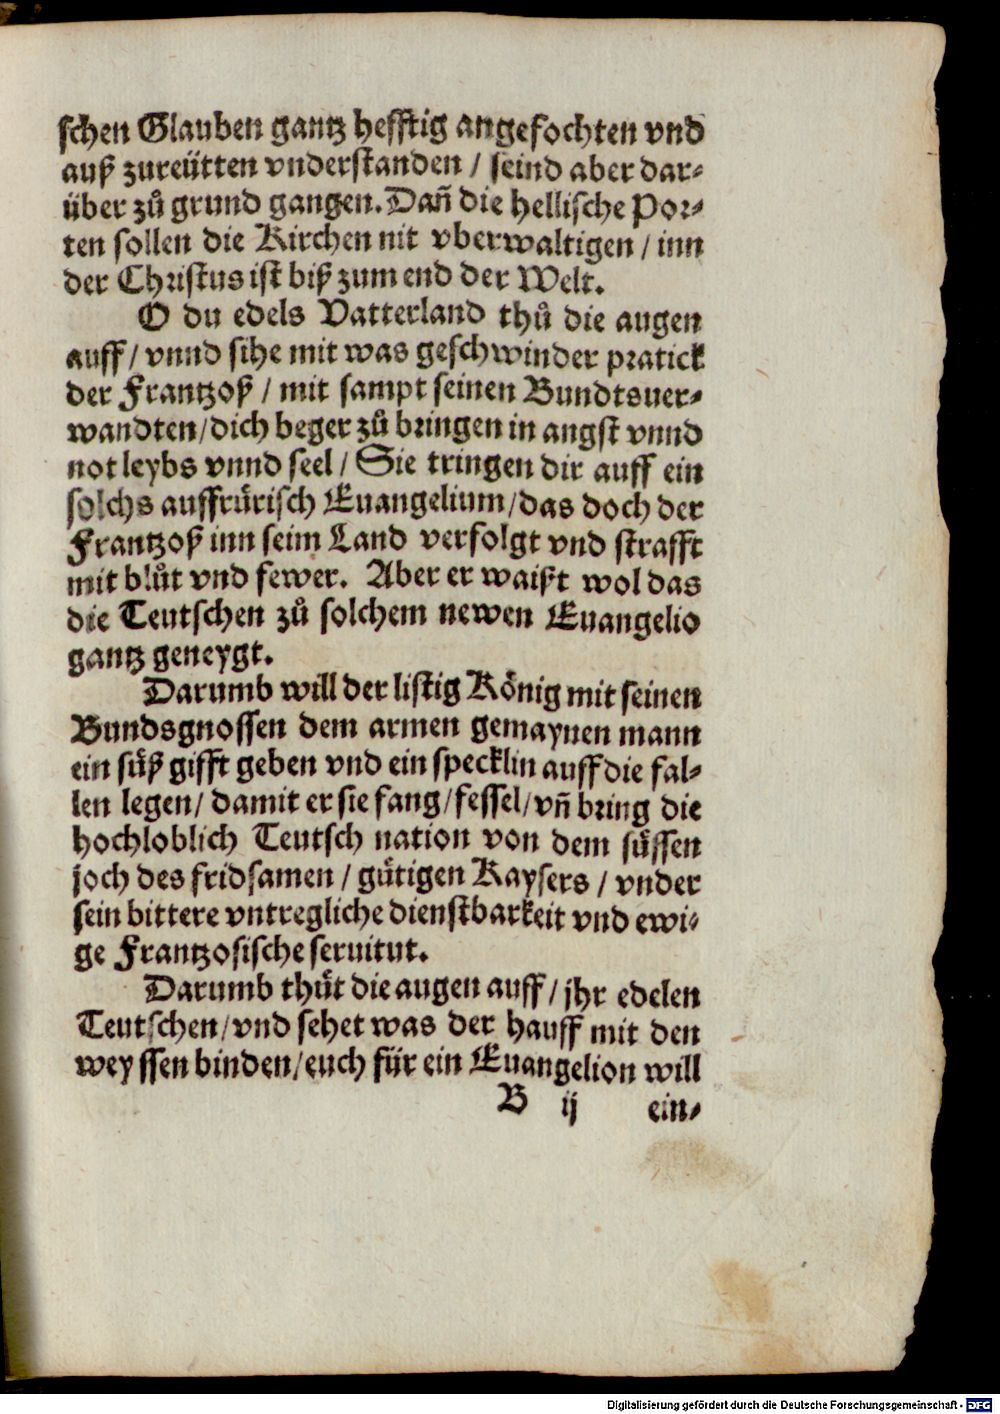 schen Glauben gantz hefftig angefochten vnd
auß zureütten vnderstanden / seind aber dar⸗
über zů grund gangen. Dañ die hellische Por⸗
ten sollen die Kirchen nit vberwaltigen / inn
der Christus ist biß zum end der Welt.
O du edels Vatterland thů die augen
auff / vnnd sihe mit was geschwinder pratick
der Frantzoß / mit sampt seinen Bundtsuer⸗
wandten / dich beger zů bringen in angst vnnd
not leybs vnnd seel / Sie tringen dir auff ein
solchs auffrůrisch Euangelium / das doch der
Frantzoß inn seim Land verfolgt vnd strafft
mit blůt vnd fewer. Aber er waißt wol das
die Teutschen zů solchem newen Euangelio
gantz geneygt.
Darumb will der listig Kőnig mit seinen
Bundsgnossen dem armen gemaynen mann
ein süß gifft geben vnd ein specklin auff die fal⸗
len legen / damit er sie fang / fessel / vñ bring die
hochloblich Teutsch nation von dem süssen
joch des fridsamen / gütigen Kaysers / vnder
sein bittere vntregliche dienstbarkeit vnd ewi⸗
ge Frantzosische seruitut.
Darumb thüt die augen auff / jhr edelen
Teutschen / vnd sehet was der hauff mit den
weyssen binden / euch für ein Euangelion will
B ij ein⸗
Digitalisierung gefördert durch die Deutsche Forschungsgemeinschaft - DFG